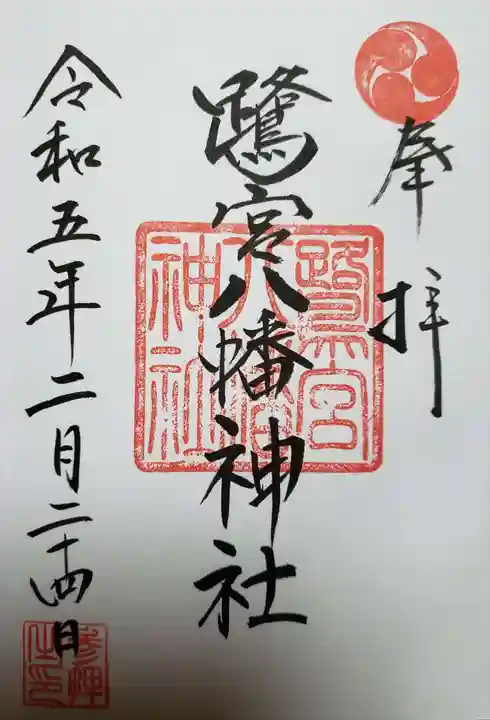 奉拝
鷺宮八幡神社
鷺宮
八幡
神社
令和五年二月二十四日